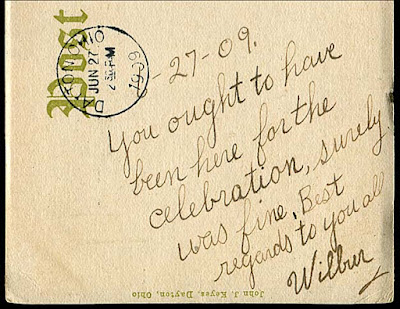 Post
DAYTON OHIO
JUN 27
2 30 PM
1909
-27-09.
You ought to have
been here for the
celebration, surely
was fine. Best
regards to you all
Wilbur
John J. Keyes, Dayton, Ohio